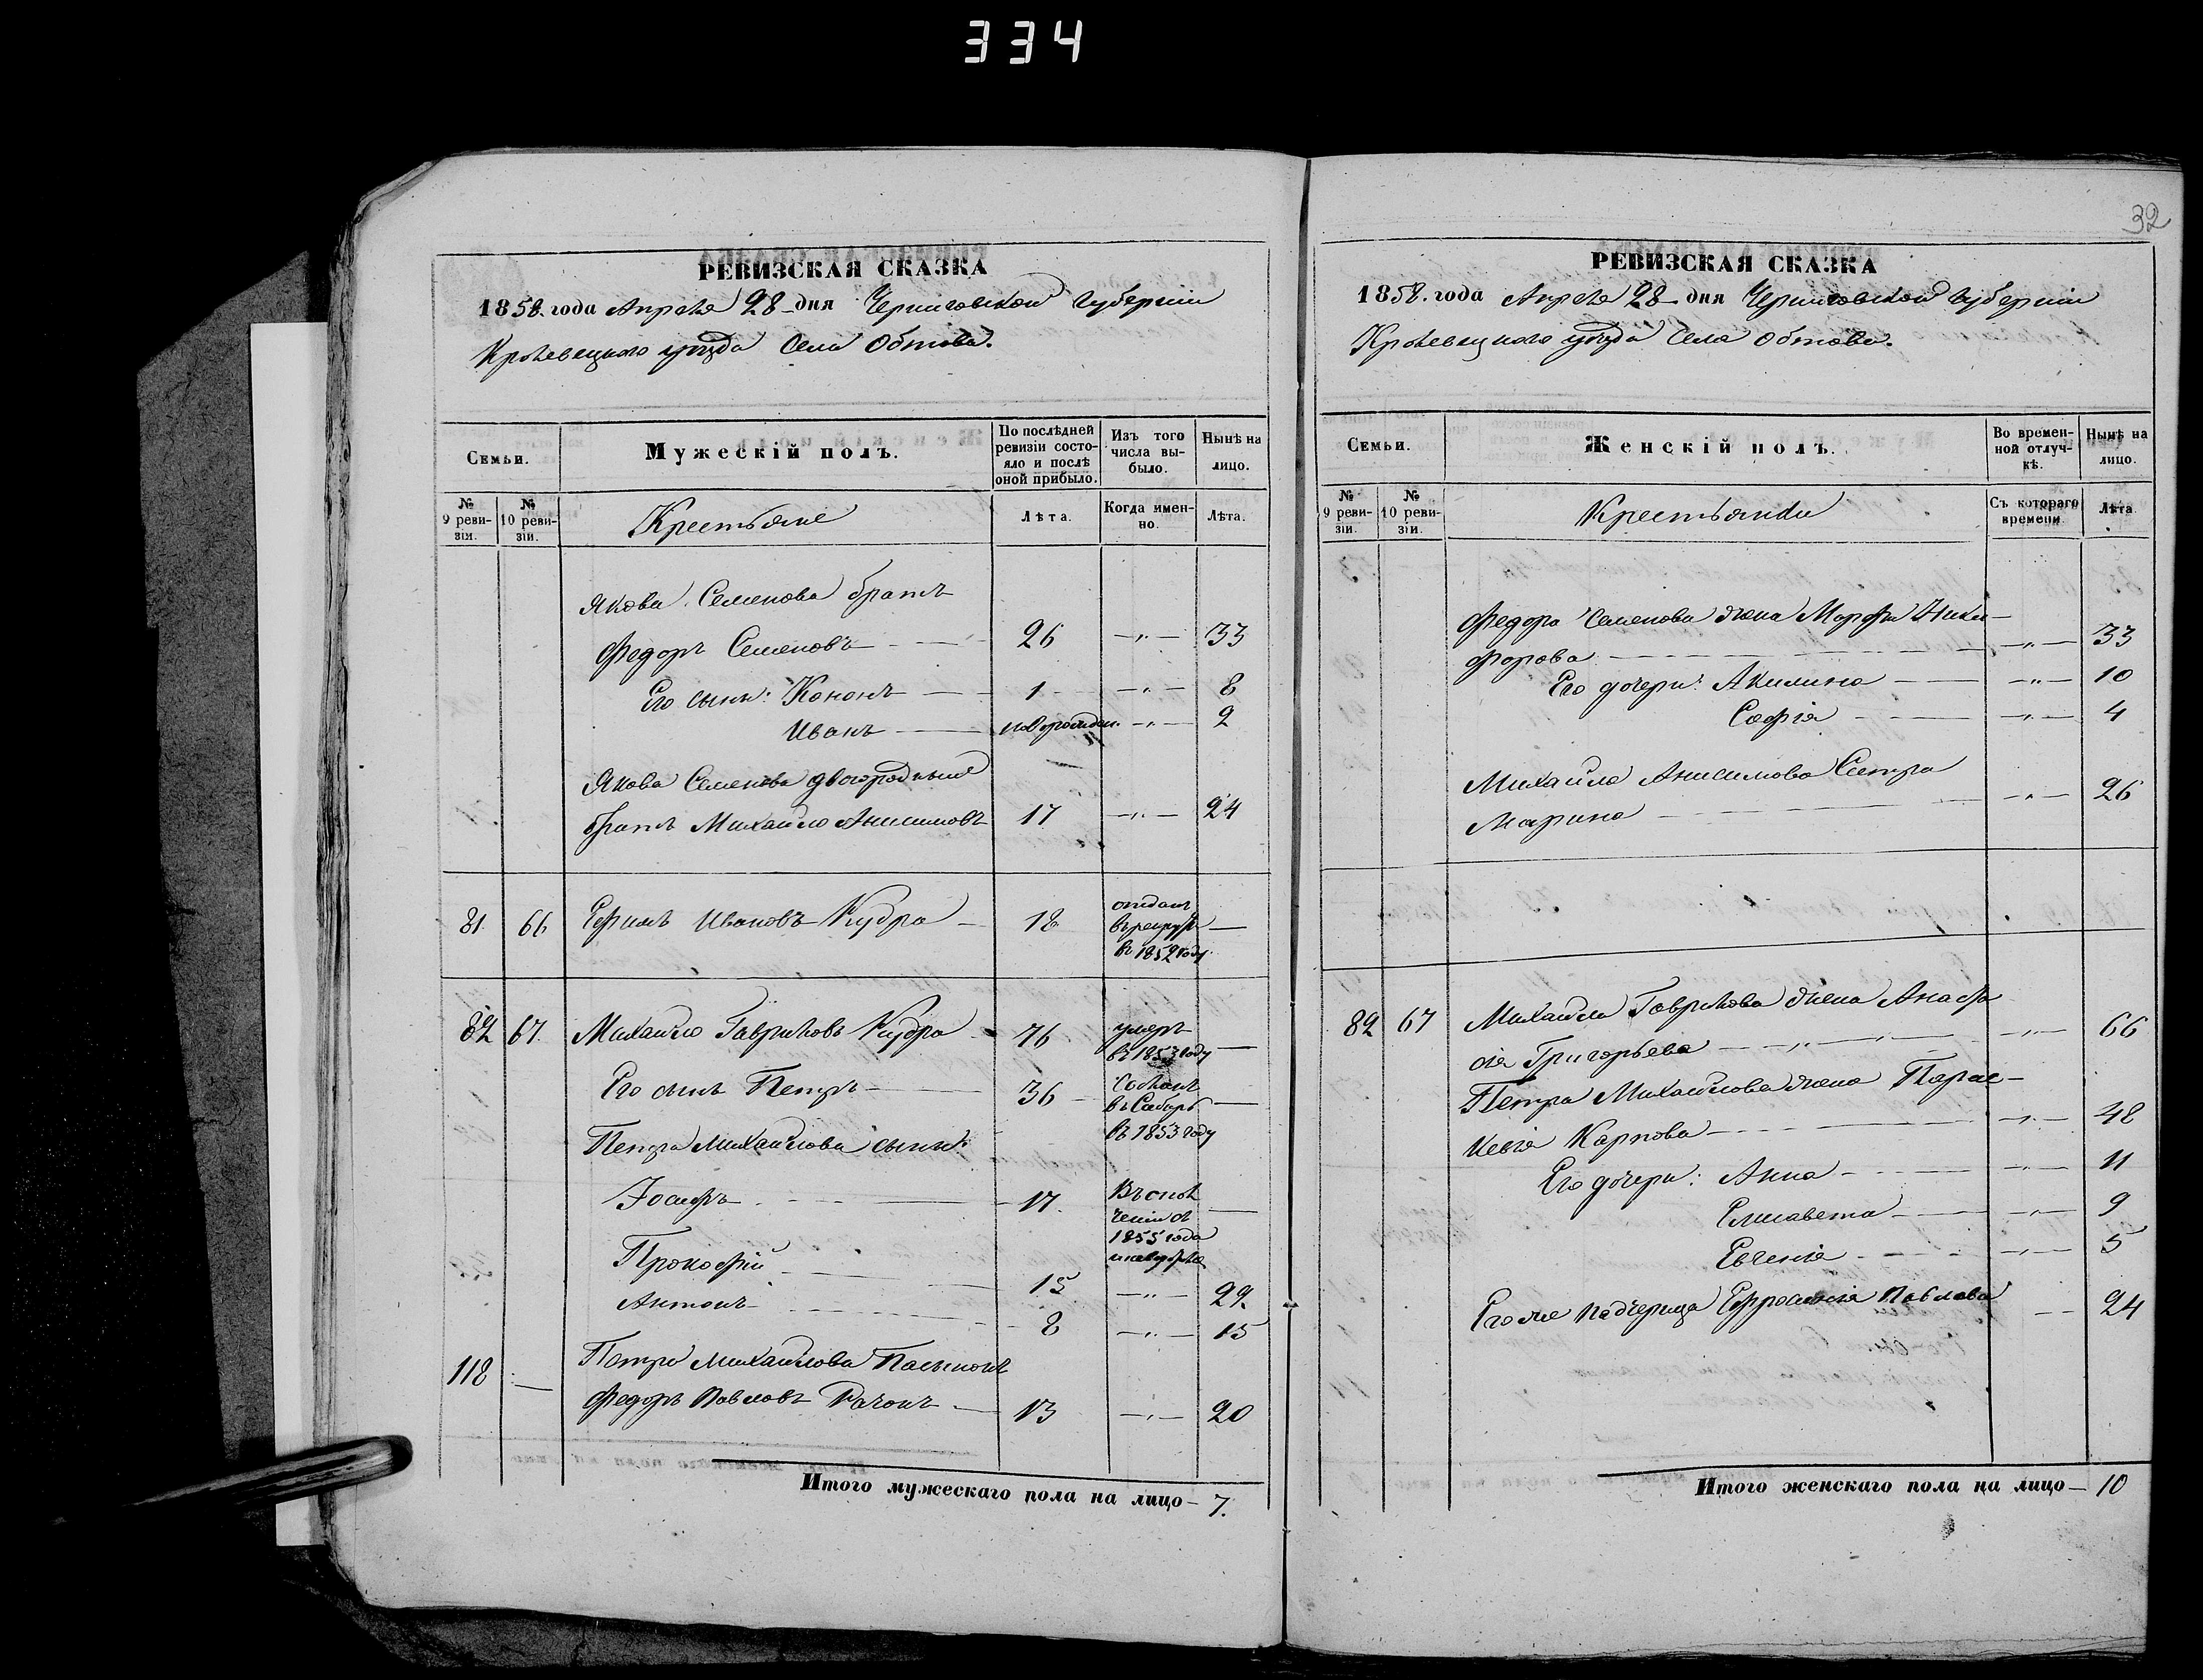 334
РЕВИЗСКАЯ СКАЗКА
1858. года Апреля 28 дня Черниговской губернии
Кролевецкаго уезда Села Обтова.
Семьи.
Мужескій полъ.
По послѣдней ревизіи состояло и послѣ оной прибыло.
Изъ того числа выбыло.
Нынѣ на лицо.
№ 9 ревизіи.
№ 10 ревизіи.
Крестьяне
Лѣта.
Когда именно.
Лѣта.
Якова Семенова братъ
Федоръ Семеновъ 26 — " — 33
Его сынъ: Кононъ 1 — " — 8
Иванъ новорожден. — " — 2
Якова Семенова двоюродный
братъ Михайло Анисимовъ 17 — " — 24
81. 66 Ефимъ Ивановъ Кудра 18 отданъ въ рекруты въ 1852 году —
82 67. Михайло Гавриловъ Кудра 76 умеръ въ 1853 году —
Его сынъ Петръ 36 Сосланъ въ Сибирь въ 1853 году —
Петра Михайлова сыны:
Іосифъ 17. 1855 года —
Прокофій 15 — " — 22
Антонъ 8 — " — 15
118 — Петра Михайлова Пасынокъ
Федоръ Павловъ 13 — " — 20
Итого мужескаго пола на лицо — 7.
32
РЕВИЗСКАЯ СКАЗКА
1858. года Апреля 28 дня Черниговской губернии
Кролевецкаго уезда Села Обтова.
Семьи.
Женскій полъ.
Во временной отлучкѣ.
Нынѣ на лицо.
№ 9 ревизіи.
№ 10 ревизіи.
Крестьянки
Съ котораго времени.
Лѣта.
Федора Семенова жена Марфа Ники-
форова — " — 33
Его дочери: Акилина — " — 10
Софія — " — 4
Михайла Анисимова Сестра
Марина — " — 26
82 67 Михайла Гаврилова жена Анаста
сія Григорьева — " — 66
Петра Михайлова жена Парас-
кевія Карпова — " — 48
Его дочери: Анна — " — 11
Елисавета — " — 9
Евгенія — " — 5
Его же падчерица Ефросинія Павлова — — 24
Итого женскаго пола на лицо — 10